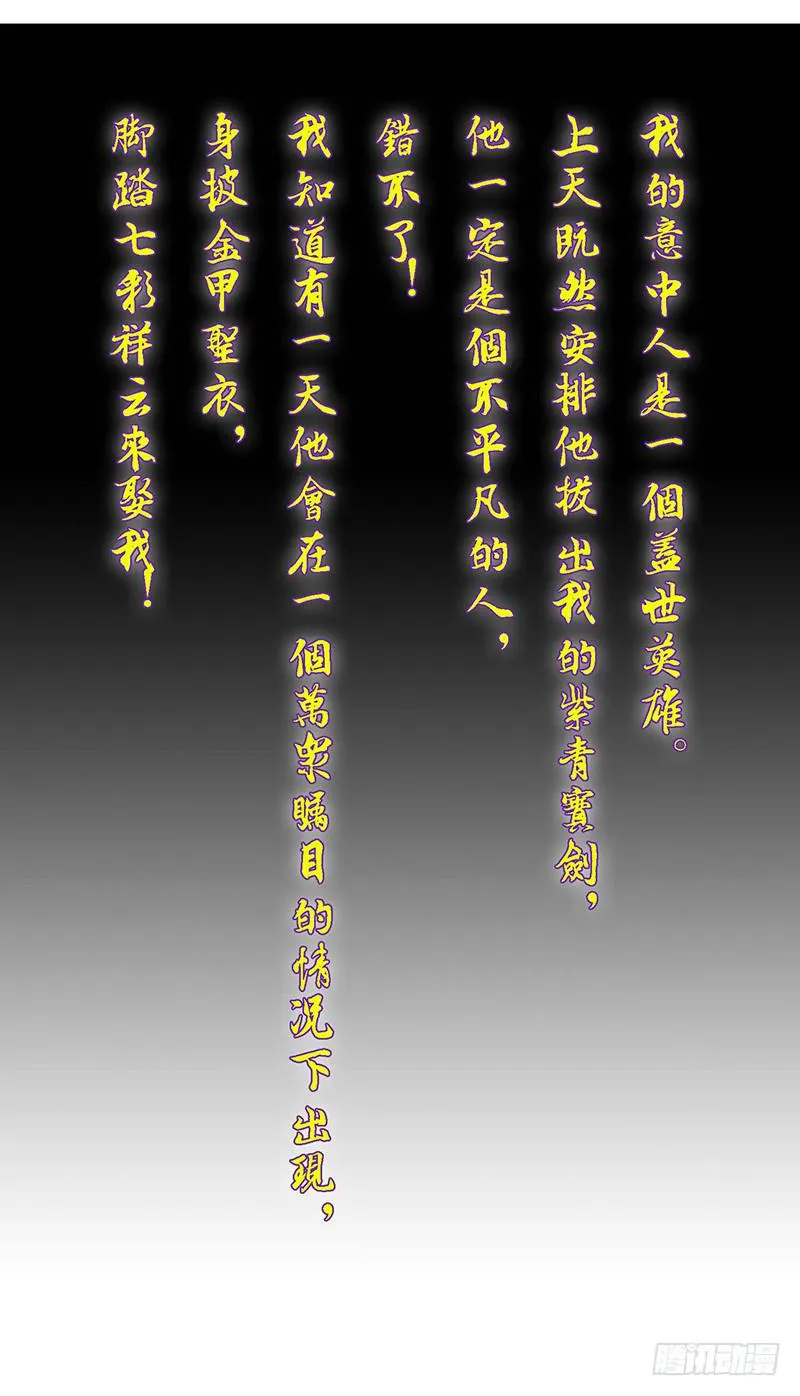 我的意中人是一個蓋世英雄。
上天既然安排他拔出我的紫青寶劍，
他一定是個不平凡的人，
錯不了！
我知道有一天他會在一個萬眾瞩目的情况下出現，
身披金甲聖衣，
脚踏七彩祥云來娶我！
腾讯动漫